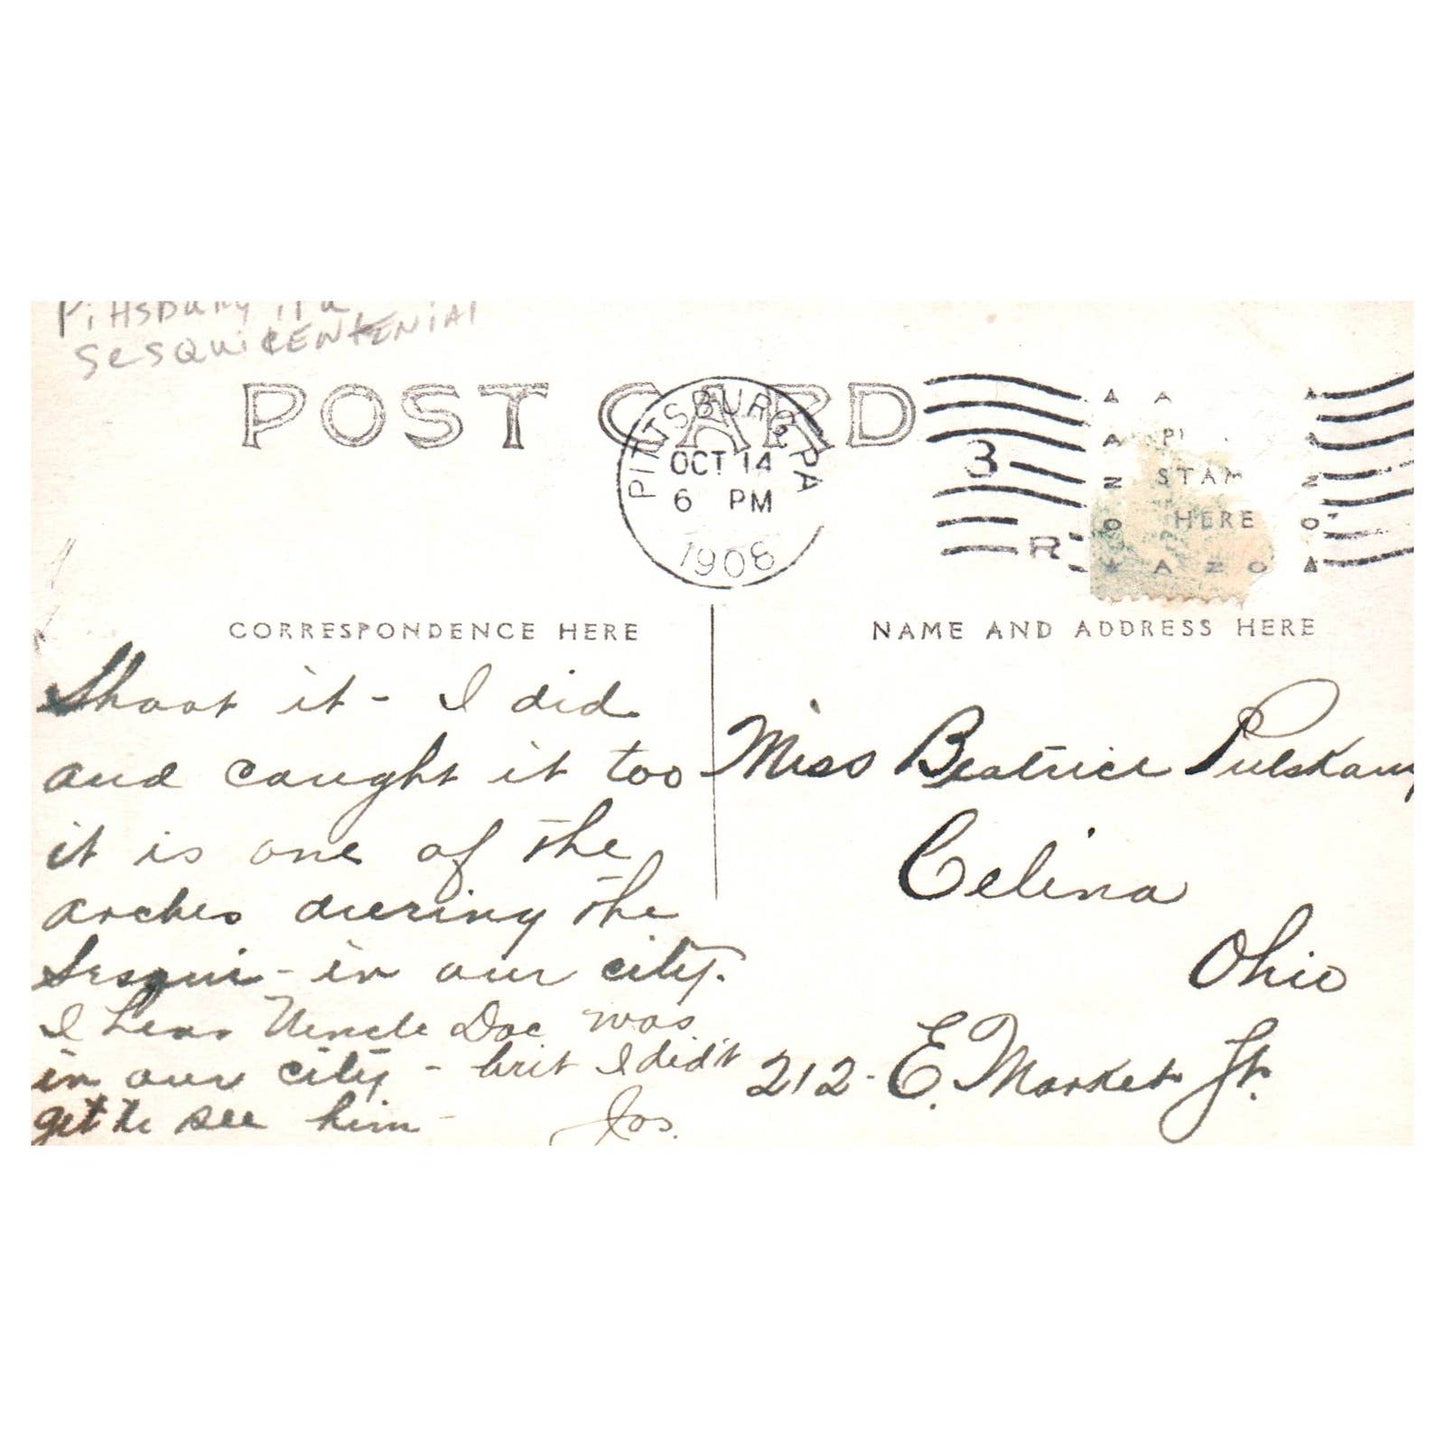 Pittsburg, Pa
SeSQuiCENtENiAl
POST CARD
PITTSBURG, PA
OCT 14
6 PM
1908
3
R
STAM
HERE
AZO
CORRESPONDENCE HERE
NAME AND ADDRESS HERE
Shoot it - I did
and caught it too
it is one of the
arches during the
Sesqui - in our city.
I hear Uncle Doc was
in our city - but I did't
get to see him -
Jos.
Miss Beatrice Pulskamp
Celina
Ohio
212 - E. Market St.